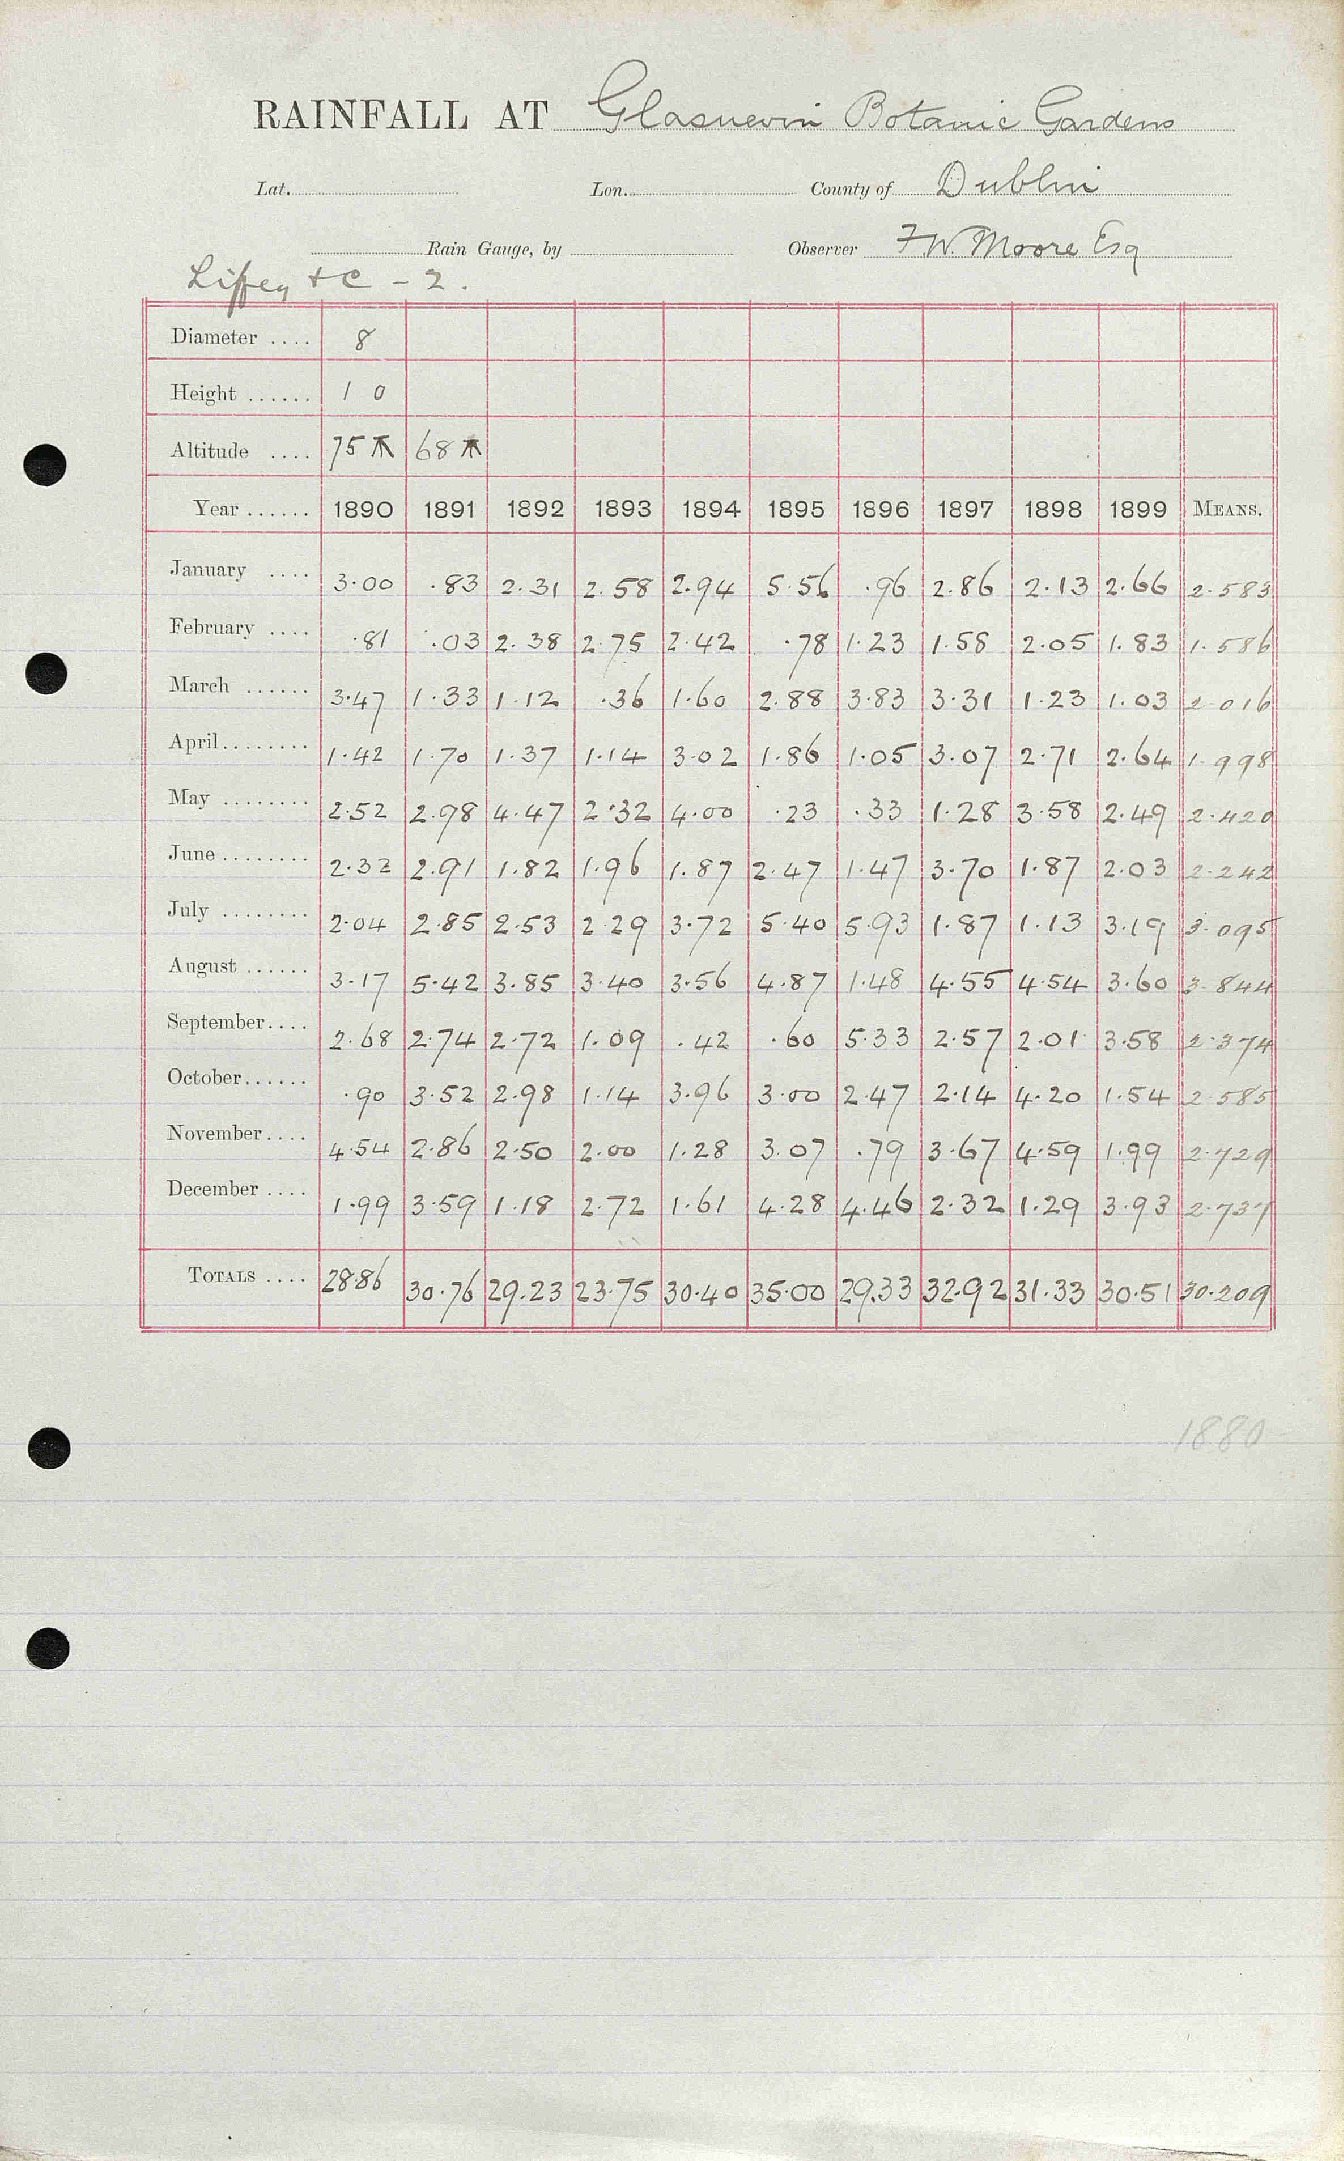 RAINFALL AT Glasnevin Botanic Gardens
Lat. Lon. County of Dublin
Rain Gauge, by Observer F W. Moore Esq
Liffey & C - 2.
Diameter .... 8
Height ...... 1 0
Altitude .... 75 68
Year ...... 1890 1891 1892 1893 1894 1895 1896 1897 1898 1899 MEANS.
January .... 3.00 .83 2.31 2.58 2.94 5.56 .96 2.86 2.13 2.66 2.583
February .... .81 .03 2.38 2.75 2.42 .78 1.23 1.58 2.05 1.83 1.586
March ...... 3.47 1.33 1.12 .36 1.60 2.88 3.83 3.31 1.23 1.03 2.016
April........ 1.42 1.70 1.37 1.14 3.02 1.86 1.05 3.07 2.71 2.64 1.998
May ........ 2.52 2.98 4.47 2.32 4.00 .23 .33 1.28 3.58 2.49 2.420
June ........ 2.32 2.91 1.82 1.96 1.87 2.47 1.47 3.70 1.87 2.03 2.242
July ........ 2.04 2.85 2.53 2.29 3.72 5.40 5.93 1.87 1.13 3.19 3.095
August ...... 3.17 5.42 3.85 3.40 3.56 4.87 1.48 4.55 4.54 3.60 3.844
September.... 2.68 2.74 2.72 1.09 .42 .60 5.33 2.57 2.01 3.58 2.374
October...... .90 3.52 2.98 1.14 3.96 3.00 2.47 2.14 4.20 1.54 2.585
November.... 4.54 2.86 2.50 2.00 1.28 3.07 .79 3.67 4.59 1.99 2.729
December .... 1.99 3.59 1.18 2.72 1.61 4.28 4.46 2.32 1.29 3.93 2.737
TOTALS .... 28.86 30.76 29.23 23.75 30.40 35.00 29.33 32.92 31.33 30.51 30.209
1880